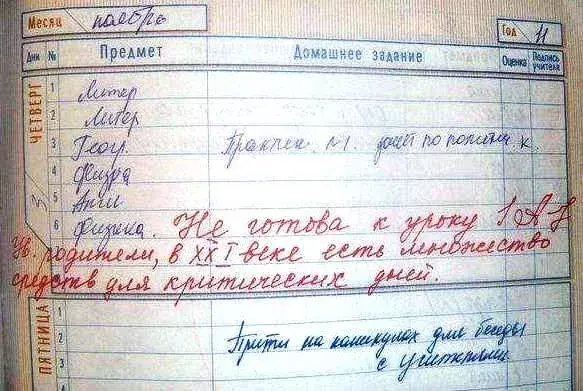 Месяц ноябрь
Год 11
Дни № Предмет Домашнее задание Оценка Подпись учителя
ЧЕТВЕРГ
1 Литер
2 Литер
3 Геогр. Практич. №1. по контин. к.
4 Физра
5 Англ
6 Физика. Не готова к уроку
Ув. родители, в XXI веке есть множество
средств для критических дней.
ПЯТНИЦА
1
2 Прийти на каникулах для беседы
3 с учителями.